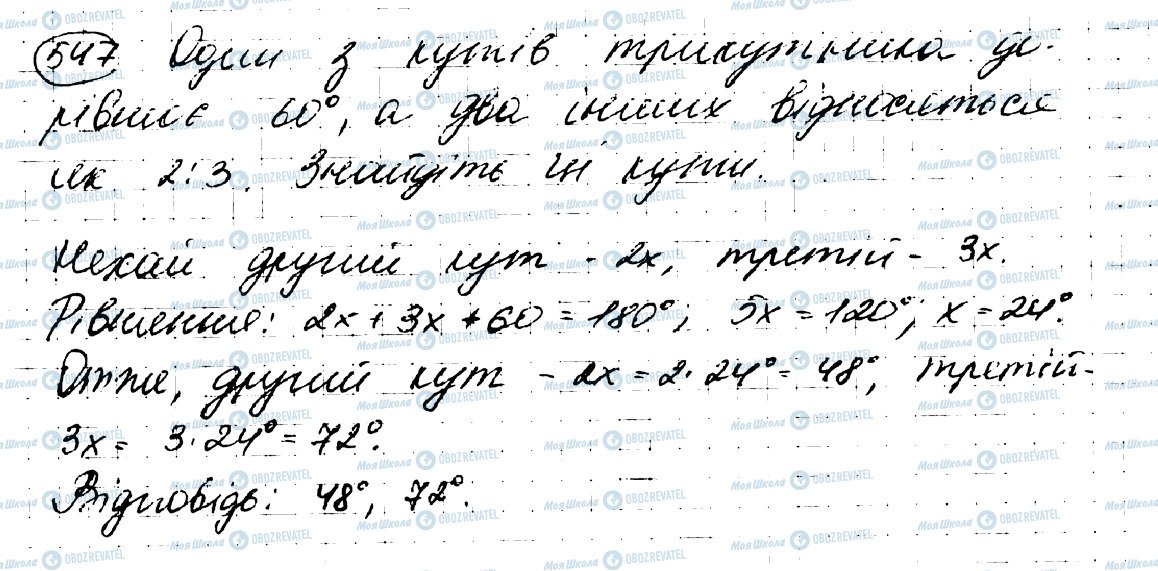 547 Один з кутів трикутника до-
рівнює 60°, а два інших відносяться
як 2:3. Знайдіть ці кути.
Нехай другий кут - 2x, третій - 3x.
Рівняння: 2x + 3x + 60 = 180°; 5x = 120°; x = 24°.
Отже, другий кут - 2x = 2·24° = 48°, третій -
3x = 3·24° = 72°.
Відповідь: 48°, 72°.